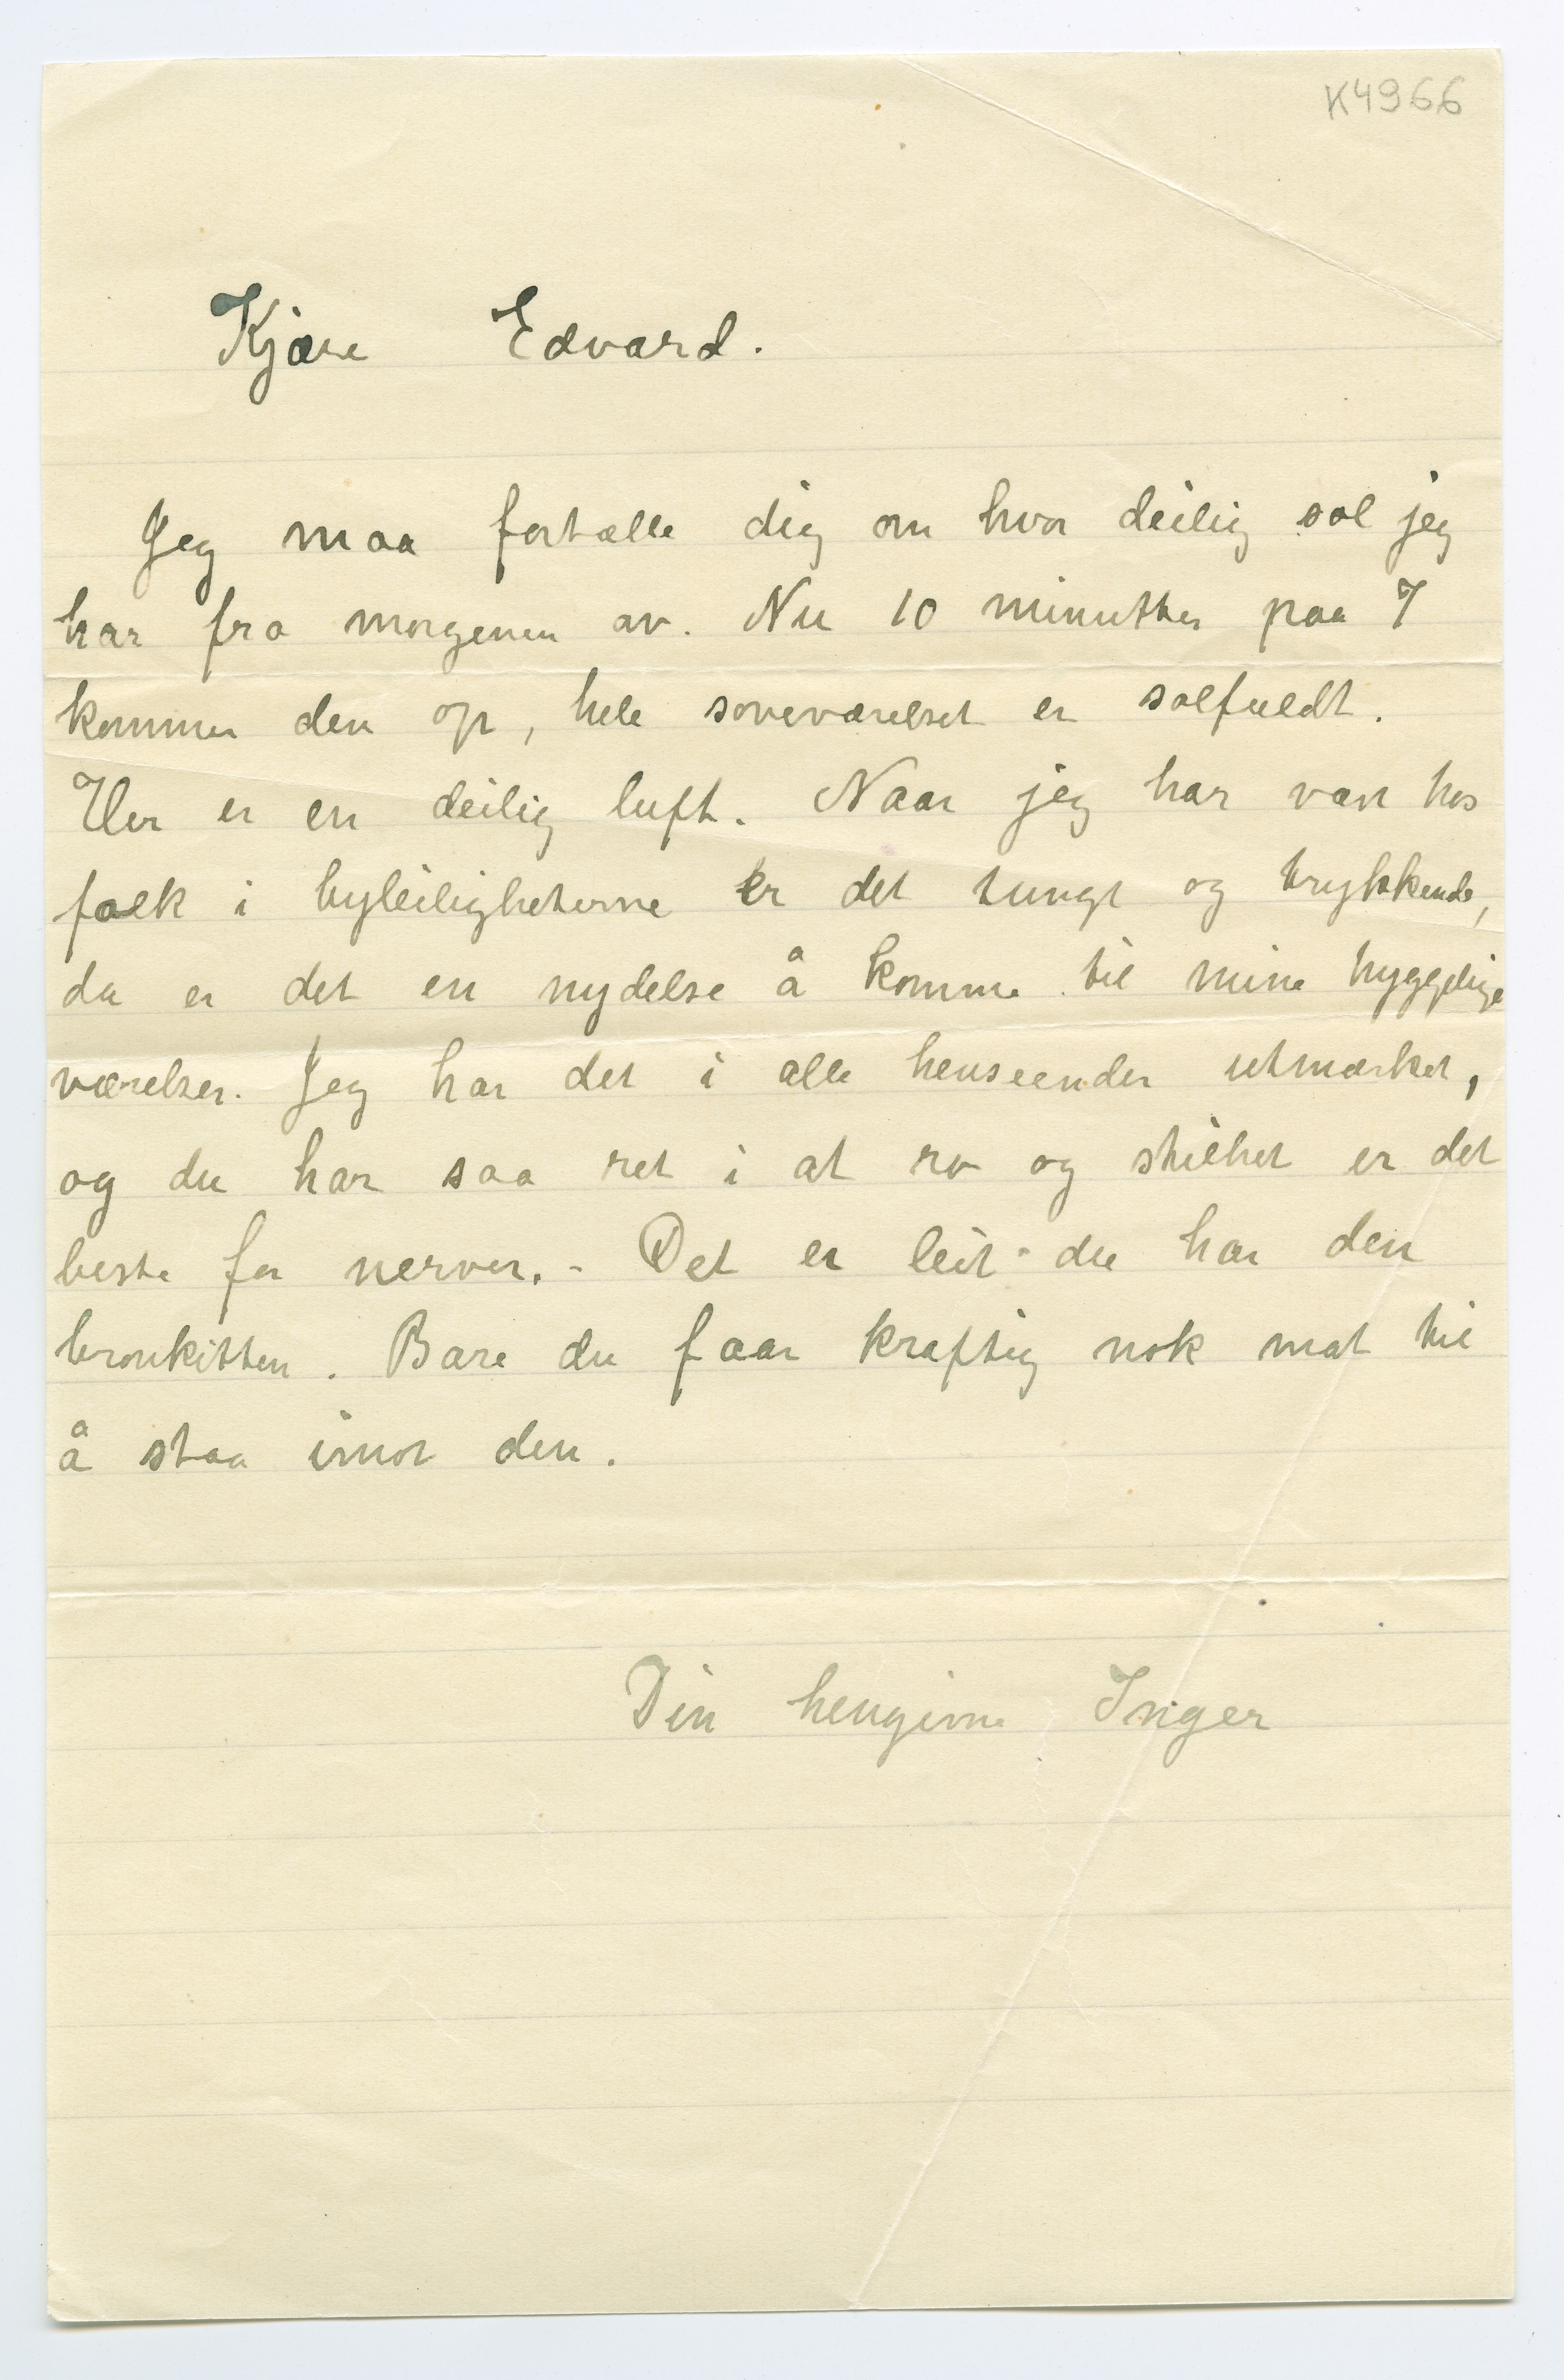 K4966
Kjære Edvard.
Jeg maa fortælle dig om hvor deilig sol jeg
har fra morgenen av. Nu 10 minutter paa 7
kommer den op, hele soveværelset er solfuldt.
Her er en deilig luft. Naar jeg har vært hos
folk i byleilighederne er det tungt og trykkende,
da er det en nydelse å komme til mine hyggelige
værelser. Jeg har det i alle henseender utmærket,
og du har saa ret i at ro og stilhet er det
beste for nerver. - Det er leit du har den
bronkitten. Bare du faar kraftig nok mat til
å staa imot den.
Din hengivne Inger